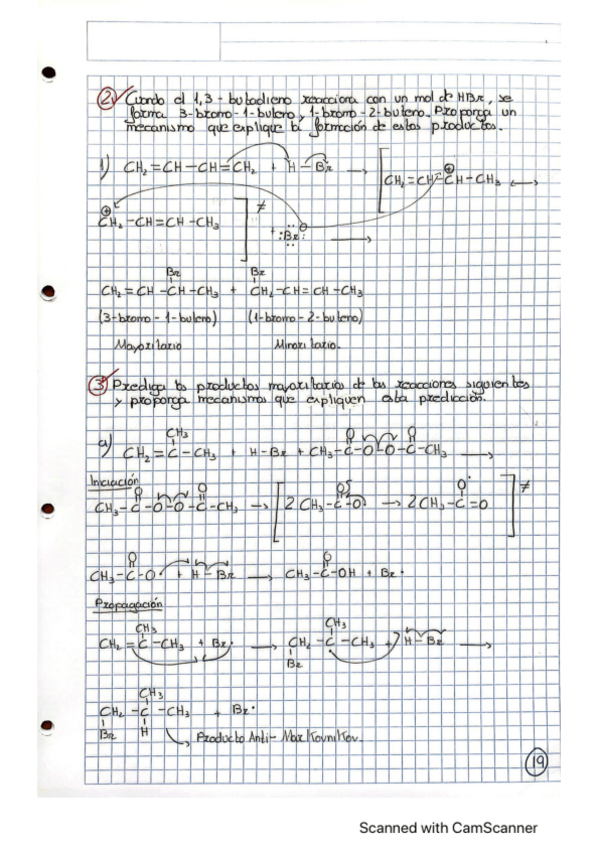 ② Cuando el 1,3-butadieno reacciona con un mol de HBr, se
forma 3-bromo-1-buteno y 1-bromo-2-buteno. Proponga un
mecanismo que explique la formación de estos productos.
1) CH₂=CH-CH=CH₂ + H-Br → [CH₂=CH-CH-CH₃ ↔
⊕
CH₂-CH=CH-CH₃ ]≠ + :Br: →
Br Br
CH₂=CH-CH-CH₃ + CH₂-CH=CH-CH₃
(3-bromo-1-buteno) (1-bromo-2-buteno)
Mayoritario Minoritario.
③ Prediga los productos mayoritarios de las reacciones siguientes
y proponga mecanismos que expliquen esta predicción.
CH₃ O O
a) CH₂=C-CH₃ + H-Br + CH₃-C-O-O-C-CH₃ →
Iniciación
O O O O
CH₃-C-O-O-C-CH₃ → [2 CH₃-C-O → 2 CH₃-C=O ]≠
O O
CH₃-C-O· + H-Br → CH₃-C-OH + Br·
Propagación
CH₃ CH₃
CH₂=C-CH₃ + Br· → CH₂-C-CH₃ + H-Br →
Br
CH₃
CH₂-C-CH₃ + Br·
Br H Producto Anti-Markovnikov.
19
Scanned with CamScanner